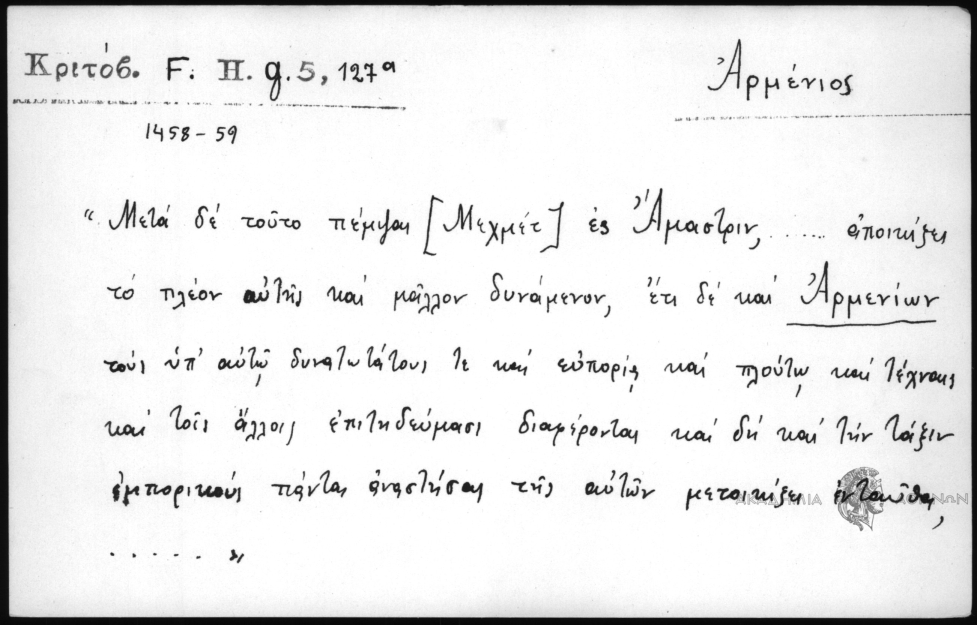 Κριτόβ. F. H. g. 5, 127ᵃ
Ἀρμένιος
1458-59
“ Μετά δέ τοῦτο πέμψας [Μεχμέτ] ἐς Ἄμαστριν, ..... ἀποικίζει
τό πλέον αὐτῆς καί μᾶλλον δυνάμενον, ἔτι δέ καί Ἀρμενίων
τούς ὑπ' αὐτῷ δυνατωτάτους τε καί εὐπορίᾳ καί πλούτῳ καί τέχναις
καί τοῖς ἄλλοις ἐπιτηδεύμασι διαφέροντας καί δή καί τήν τάξιν
ἐμπορικούς πάντας ἀναστήσας τῆς αὐτῶν μετοικίζει ἐνταῦθα,
..... »
ΑΚΑΔΗΜΙΑ ΑΘΗΝΩΝ